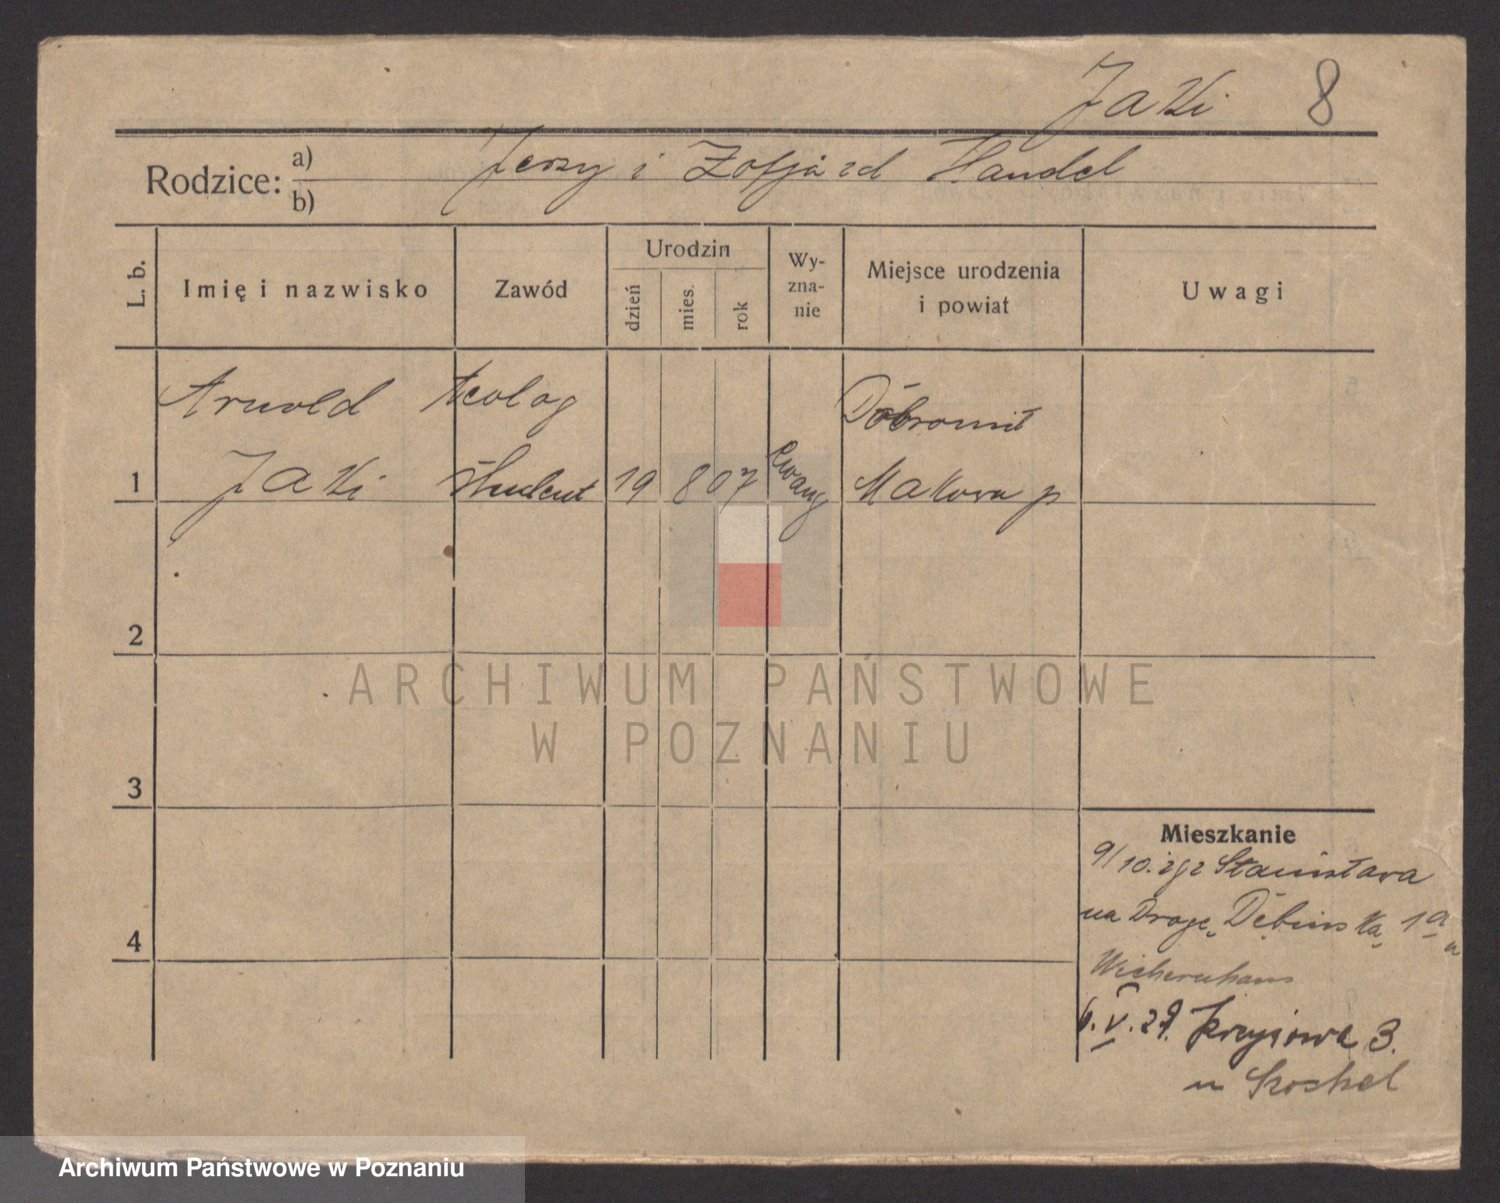 Jaki 8
Rodzice: a) b) Jerzy i Zofja zd Handel
L. b.
Imię i nazwisko
Zawód
Urodzin
dzień
mies.
rok
Wy-
zna-
nie
Miejsce urodzenia
i powiat
Uwagi
Arnold teolog Dobromil
1 Jaki student 19 8 07 ewang Makowa p
2
ARCHIWUM PAŃSTWOWE
W POZNANIU
3
Mieszkanie
9/10. Stanisława
na Drogę Dębińską 1a
4
Wichernhaus
6.V.29. Krzyżowa 3.
u
Archiwum Państwowe w Poznaniu